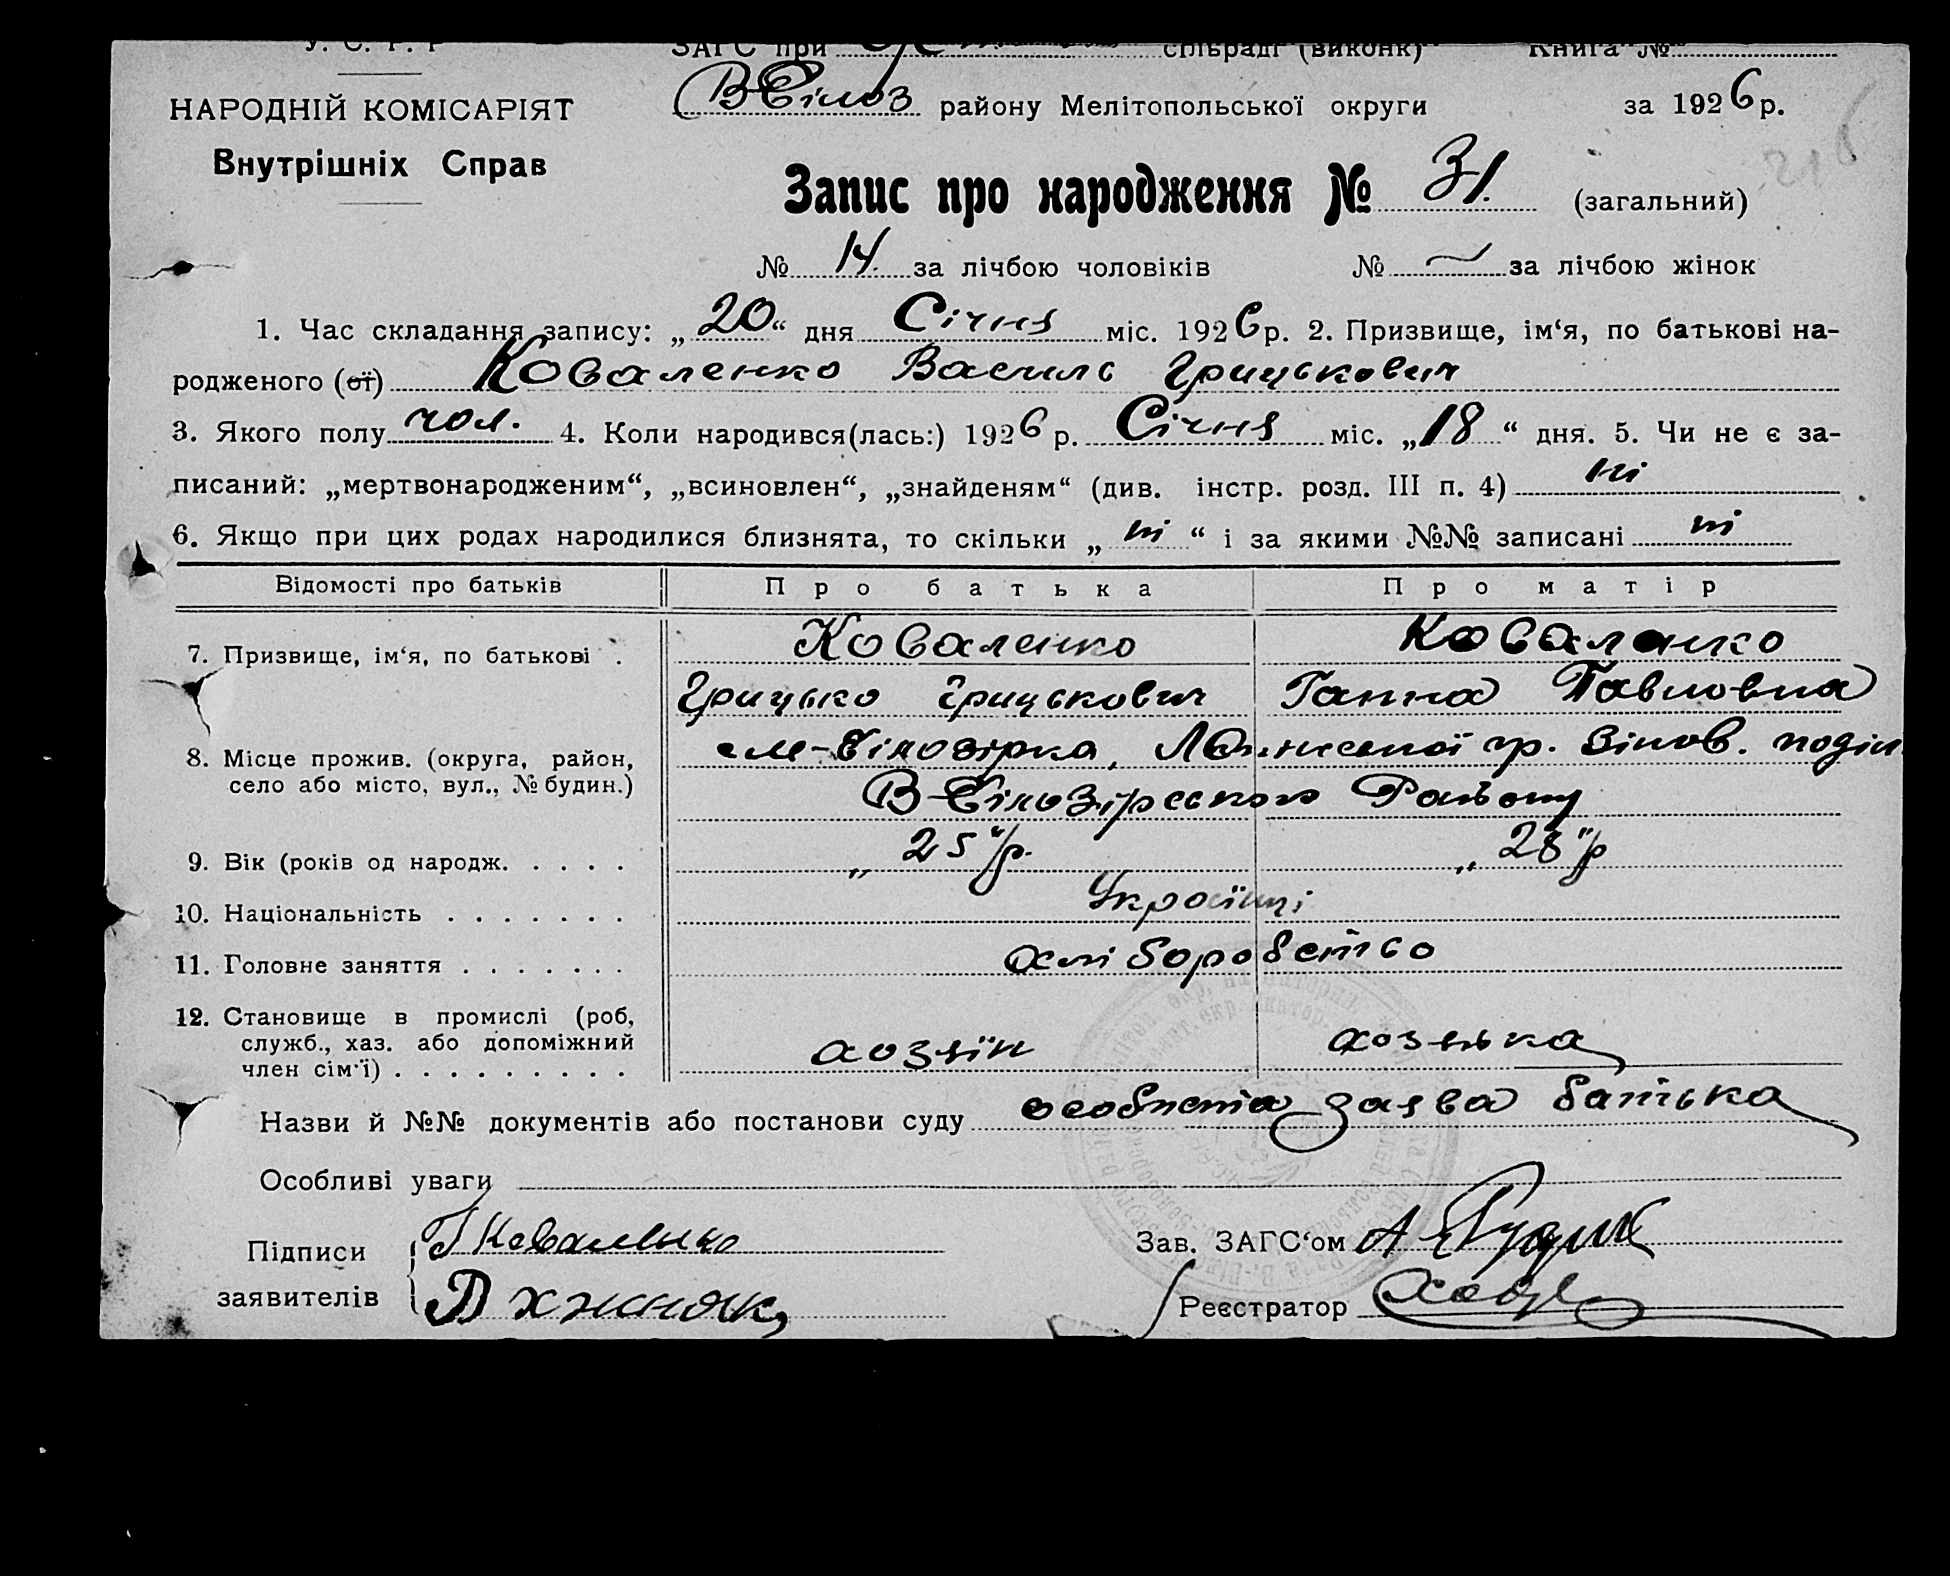 У. С. Р. Р ЗАГС при спільраді (виконк) Книга №
НАРОДНІЙ КОМІСАРІЯТ В-Білоз району Мелітопольської округи за 1926 р.
Внутрішніх Справ
Запис про народження № 31. (загальний)
№ 14. за лічбою чоловіків № — за лічбою жінок
1. Час складання запису: „20“ дня Січня міс. 1926 р. 2. Призвище, ім‘я, по батькові на-
родженого (ої) Коваленко Василь Грицькович
3. Якого полу чол. 4. Коли народився(лась:) 1926 р. Січня міс. „18“ дня. 5. Чи не є за-
писаний: „мертвонародженим“, „всиновлен“, „знайденям“ (див. інстр. розд. III п. 4) ні
6. Якщо при цих родах народилися близнята, то скільки „ ні “ і за якими №№ записані ні
Відомості про батьків Про батька Про матір
7. Призвище, ім‘я, по батькові . Коваленко Коваленко
Грицько Грицькович Ганна Павловна
8. Місце прожив. (округа, район, см-Білозірка, гр. Зінов.
село або місто, вул., № будин.) В-Білозірського Району
9. Вік (років од народж. . . . . „25“ р. „28“ р
10. Національність . . . . . . . Українці
11. Головне заняття . . . . . . . хліборобство
12. Становище в промислі (роб,
служб., хаз. або допоміжний хозяїн хозяйка
член сім‘ї) . . . . . . . . .
Назви й №№ документів або постанови суду особиста заява батька
Особливі уваги
Підписи Г Коваленко Зав. ЗАГС‘ом А
заявителів Реєстратор